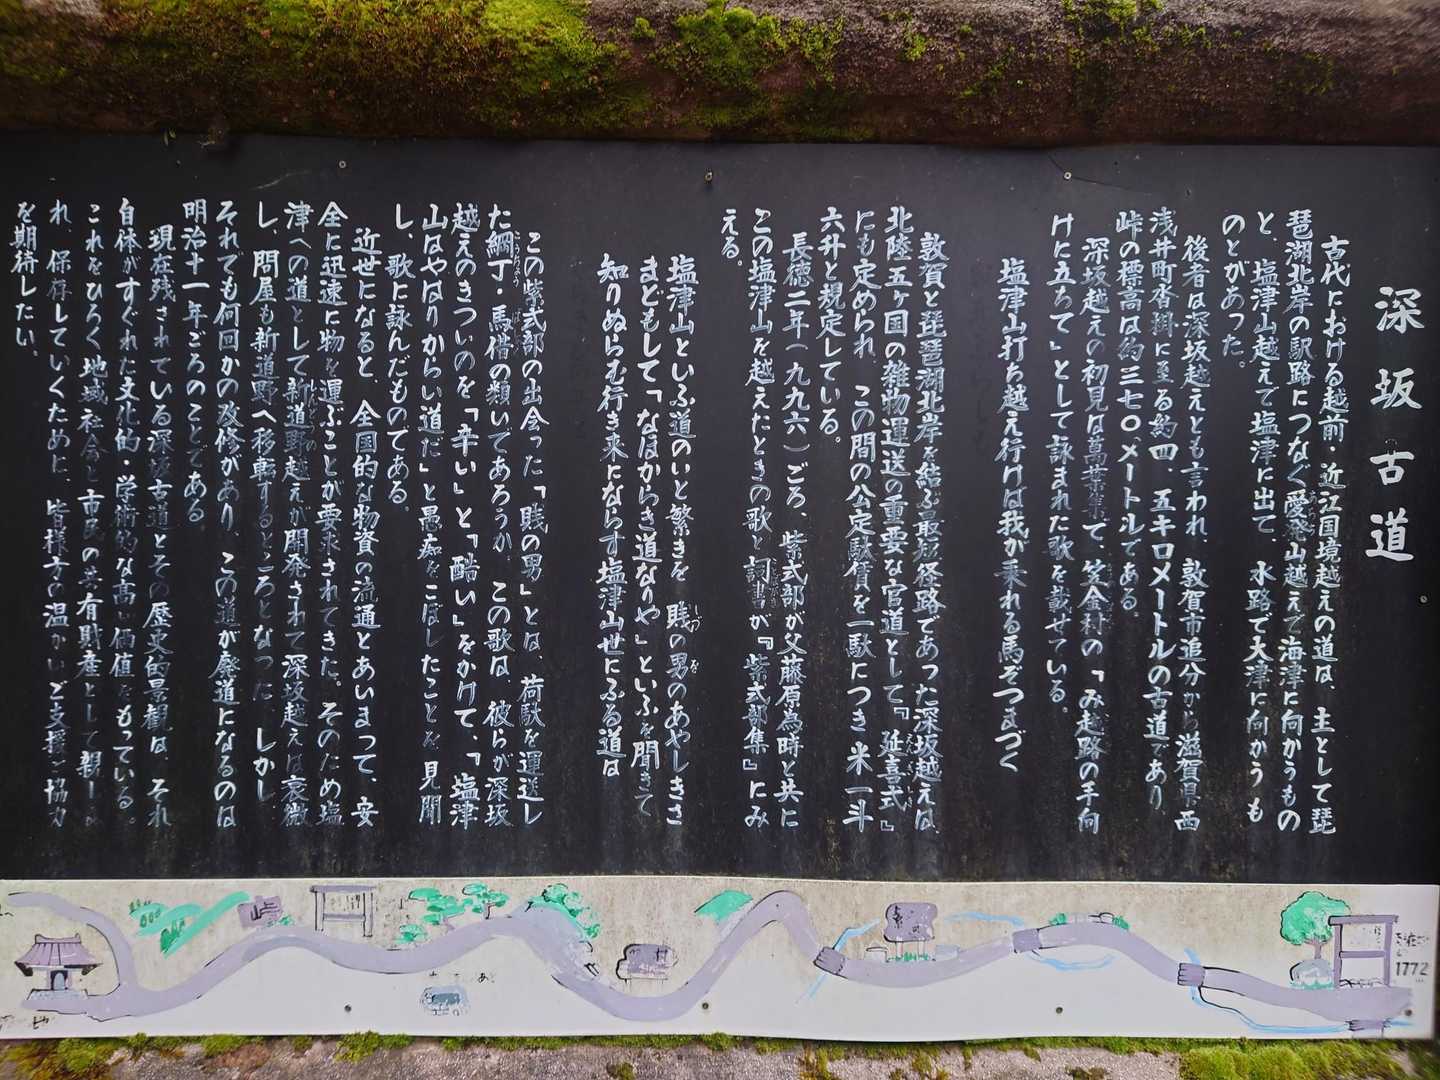 深坂古道
古代における越前・近江国境越えの道は、主として琵
琶湖北岸の駅路につなぐ愛発山越えで海津に向かうもの
と、塩津山越えで塩津に出て、水路で大津に向かうも
のとがあった。
後者は深坂越えとも言われ、敦賀市追分から滋賀県西
浅井町沓掛に至る約四、五キロメートルの古道であり
峠の標高は約三七〇メートルである。
深坂越えの初見は萬葉集で、笠金村の「み越路の手向
けに立ちて」として詠まれた歌を載せている。
塩津山打ち越え行けば我が乗れる馬ぞつまづく
敦賀と琵琶湖北岸を結ぶ最短径路であった深坂越えは、
北陸五ヶ国の雑物運送の重要な官道として『延喜式』
にも定められ、この間の公定駄賃を一駄につき米一斗
六升と規定している。
長徳二年(九九六)ごろ、紫式部が父藤原為時と共に
この塩津山を越えたときの歌と詞書が『紫式部集』にみ
える。
塩津山といふ道のいと繁きを 賤の男のあやしきさ
まどもして「なほからき道なりや」といふを聞きて
知りぬらむ行き来にならす塩津山世にふる道は
この紫式部の出会った「賤の男」とは、荷駄を運送し
た綱丁・馬借の類いであろうか、この歌は、彼らが深坂
越えのきついのを「辛い」と「酷い」をかけて、「塩津
山はやはりからい道だ」と愚痴をこぼしたことを見聞
し、歌に詠んだものである。
近世になると、全国的な物資の流通とあいまって、安
全に迅速に物を運ぶことが要求されてきた。そのため塩
津への道として新道野越えが開発されて深坂越えは衰微
し、問屋も新道野へ移転するところとなった。しかし
それでも何回かの改修があり、この道が廃道になるのは
明治十一年ごろのことである。
現在残されている深坂古道とその歴史的景観は、それ
自体がすぐれた文化的・学術的な高い価値をもっている。
これをひろく地域社会と市民の共有財産として親しま
れ、保存していくために、皆様方の温かいご支援ご協力
を期待したい。
峠
1772